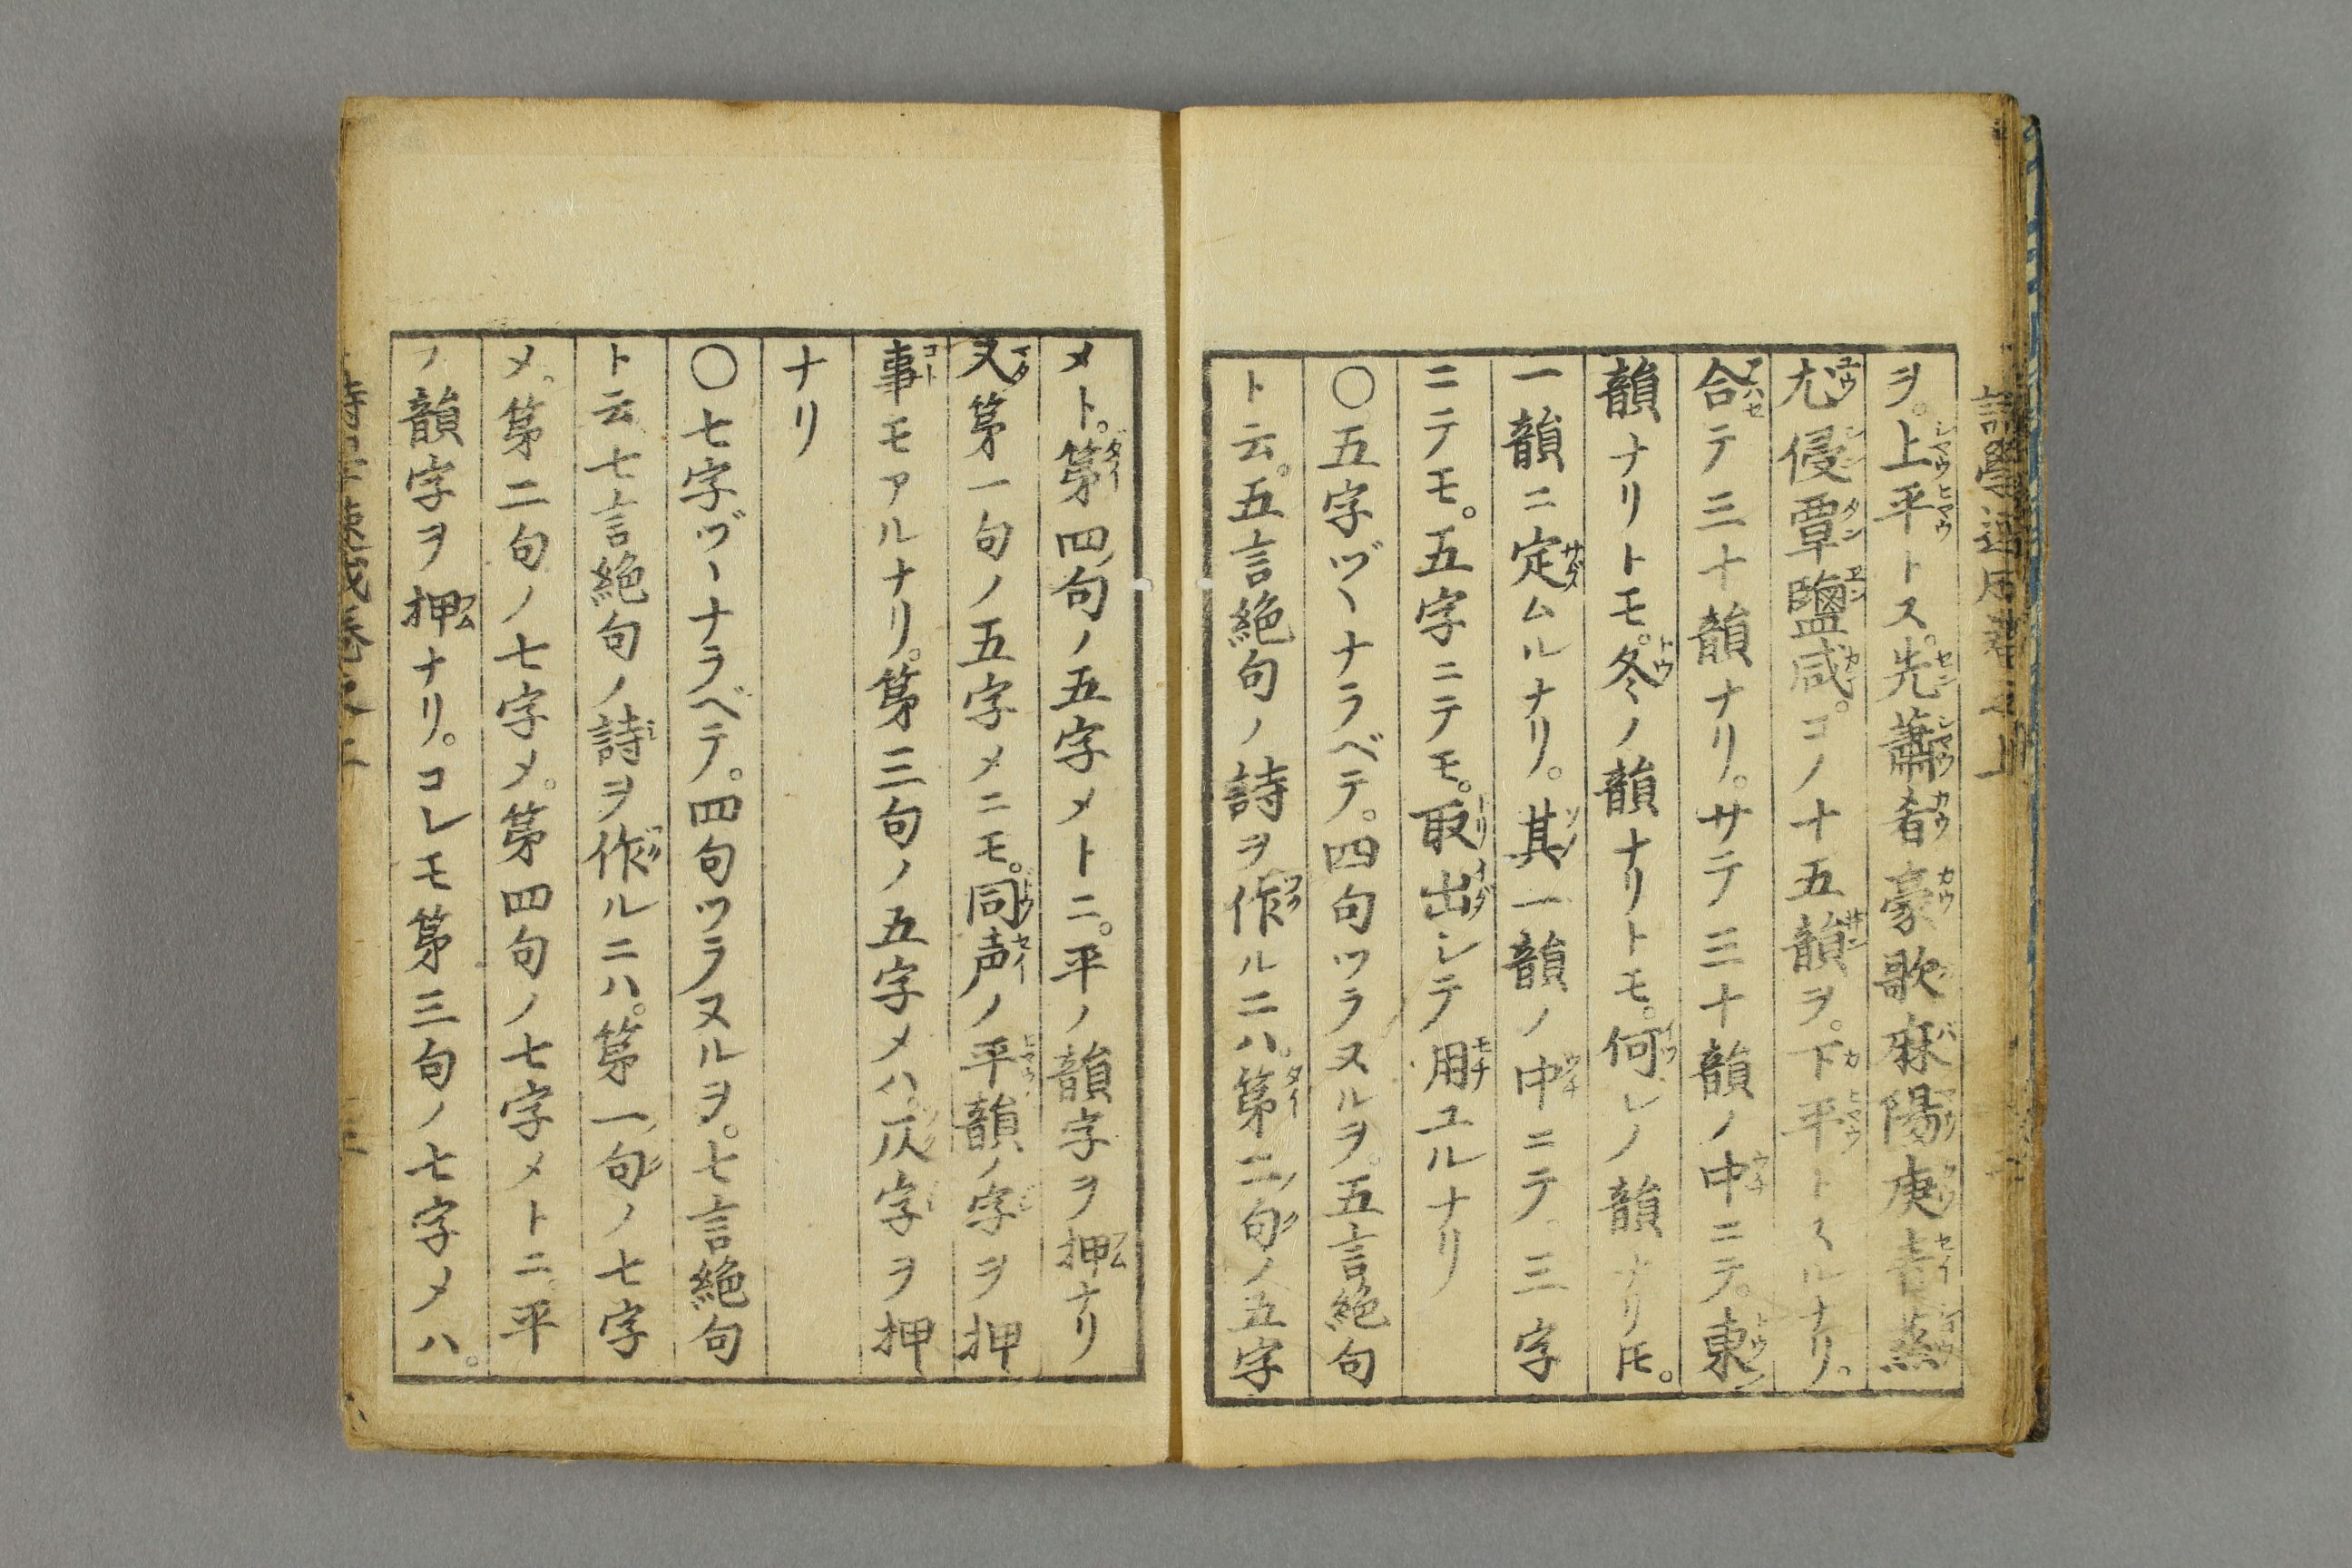 ヲ。上平トス。先蕭肴豪歌麻陽庚青蒸
尤侵覃鹽咸。コノ十五韻ヲ。下平トスルナリ。
合テ三十韻ナリ。サテ三十韻ノ中ニテ。東ノ
韻ナリトモ。冬ノ韻ナリトモ。何レノ韻ナリ𪜈。
一韻ニ定ムルナリ。其一韻ノ中ニテ。三字
ニテモ。五字ニテモ。取出シテ用ユルナリ
〇五字ヅヽナラベテ。四句ツラヌルヲ。五言絶句
ト云。五言絶句ノ詩ヲ作ルニハ。第二句ノ五字
メト。第四句ノ五字メトニ。平ノ韻字ヲ押ナリ
又第一句ノ五字メニモ。同声ノ平韻ノ字ヲ押
事モアルナリ。第三句ノ五字メハ。仄字ヲ押
ナリ
〇七字ヅヽナラベテ。四句ツラヌルヲ。七言絶句
ト云七言絶句ノ詩ヲ作ルニハ。第一句ノ七字
メ。第二句ノ七字メ。第四句ノ七字メトニ。平
ノ韻字ヲ押ナリ。コレモ第三句ノ七字メハ。